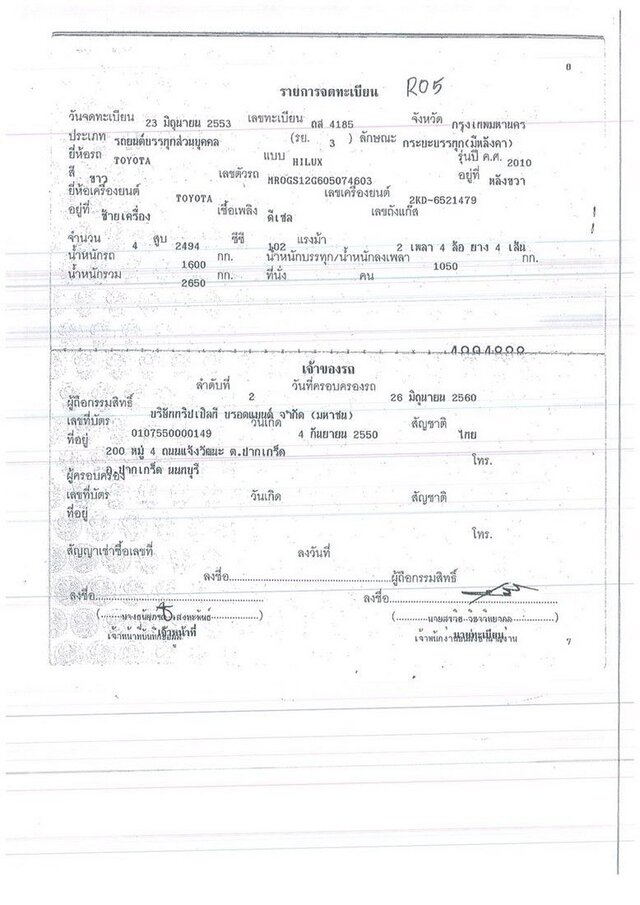 0
รายการจดทะเบียน R05
วันจดทะเบียน 23 มิถุนายน 2553 เลขทะเบียน ถส 4185 จังหวัด กรุงเทพมหานคร
ประเภท รถยนต์บรรทุกส่วนบุคคล (รย. 3 ) ลักษณะ กระบะบรรทุก(มีหลังคา)
ยี่ห้อรถ TOYOTA แบบ HILUX รุ่นปี ค.ศ. 2010
สี ขาว เลขตัวรถ MROGS12G605074603 อยู่ที่ หลังขวา
ยี่ห้อเครื่องยนต์ TOYOTA เลขเครื่องยนต์ 2KD-6521479
อยู่ที่ ซ้ายเครื่อง เชื้อเพลิง ดีเซล เลขถังแก๊ส
จำนวน 4 สูบ 2494 ซีซี 102 แรงม้า 2 เพลา 4 ล้อ ยาง 4 เส้น
น้ำหนักรถ 1600 กก. น้ำหนักบรรทุก/น้ำหนักลงเพลา 1050 กก.
น้ำหนักรวม 2650 กก. ที่นั่ง คน
เจ้าของรถ
ลำดับที่ 2 วันที่ครอบครองรถ 26 มิถุนายน 2560
ผู้ถือกรรมสิทธิ์ บริษัททริปเปิลที บรอดแบนด์ จำกัด (มหาชน)
เลขที่บัตร 0107550000149 วันเกิด 4 กันยายน 2550 สัญชาติ ไทย
ที่อยู่ 200 หมู่ 4 ถนนแจ้งวัฒนะ ต.ปากเกร็ด
อ.ปากเกร็ด นนทบุรี โทร.
ผู้ครอบครอง
เลขที่บัตร วันเกิด สัญชาติ
ที่อยู่
โทร.
สัญญาเช่าซื้อเลขที่ ลงวันที่
ลงชื่อ ผู้ถือกรรมสิทธิ์
ลงชื่อ ลงชื่อ
เจ้าหน้าที่ นายทะเบียน
7